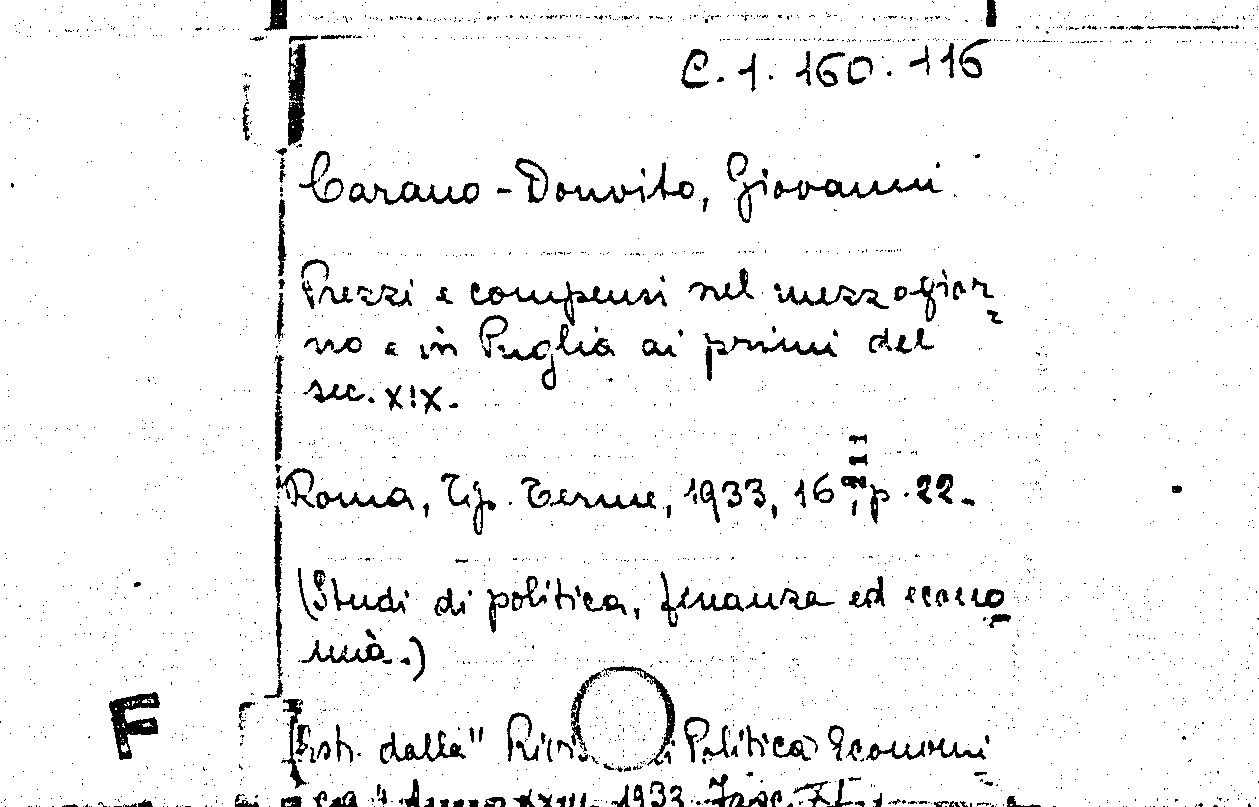 C. 1. 160. 116
Carano-Donvito, Giovanni
Prezzi e compensi nel mezzogior-
no e in Puglia ai primi del
sec. XIX.
Roma, Tip. Terme, 1933, 16°, p. 22.
(Studi di politica, finanza ed econo-
mia.)
F
Estr. dalla "Rivi di Politica Economi-
ca" Anno XXIII, 1933. Fasc.